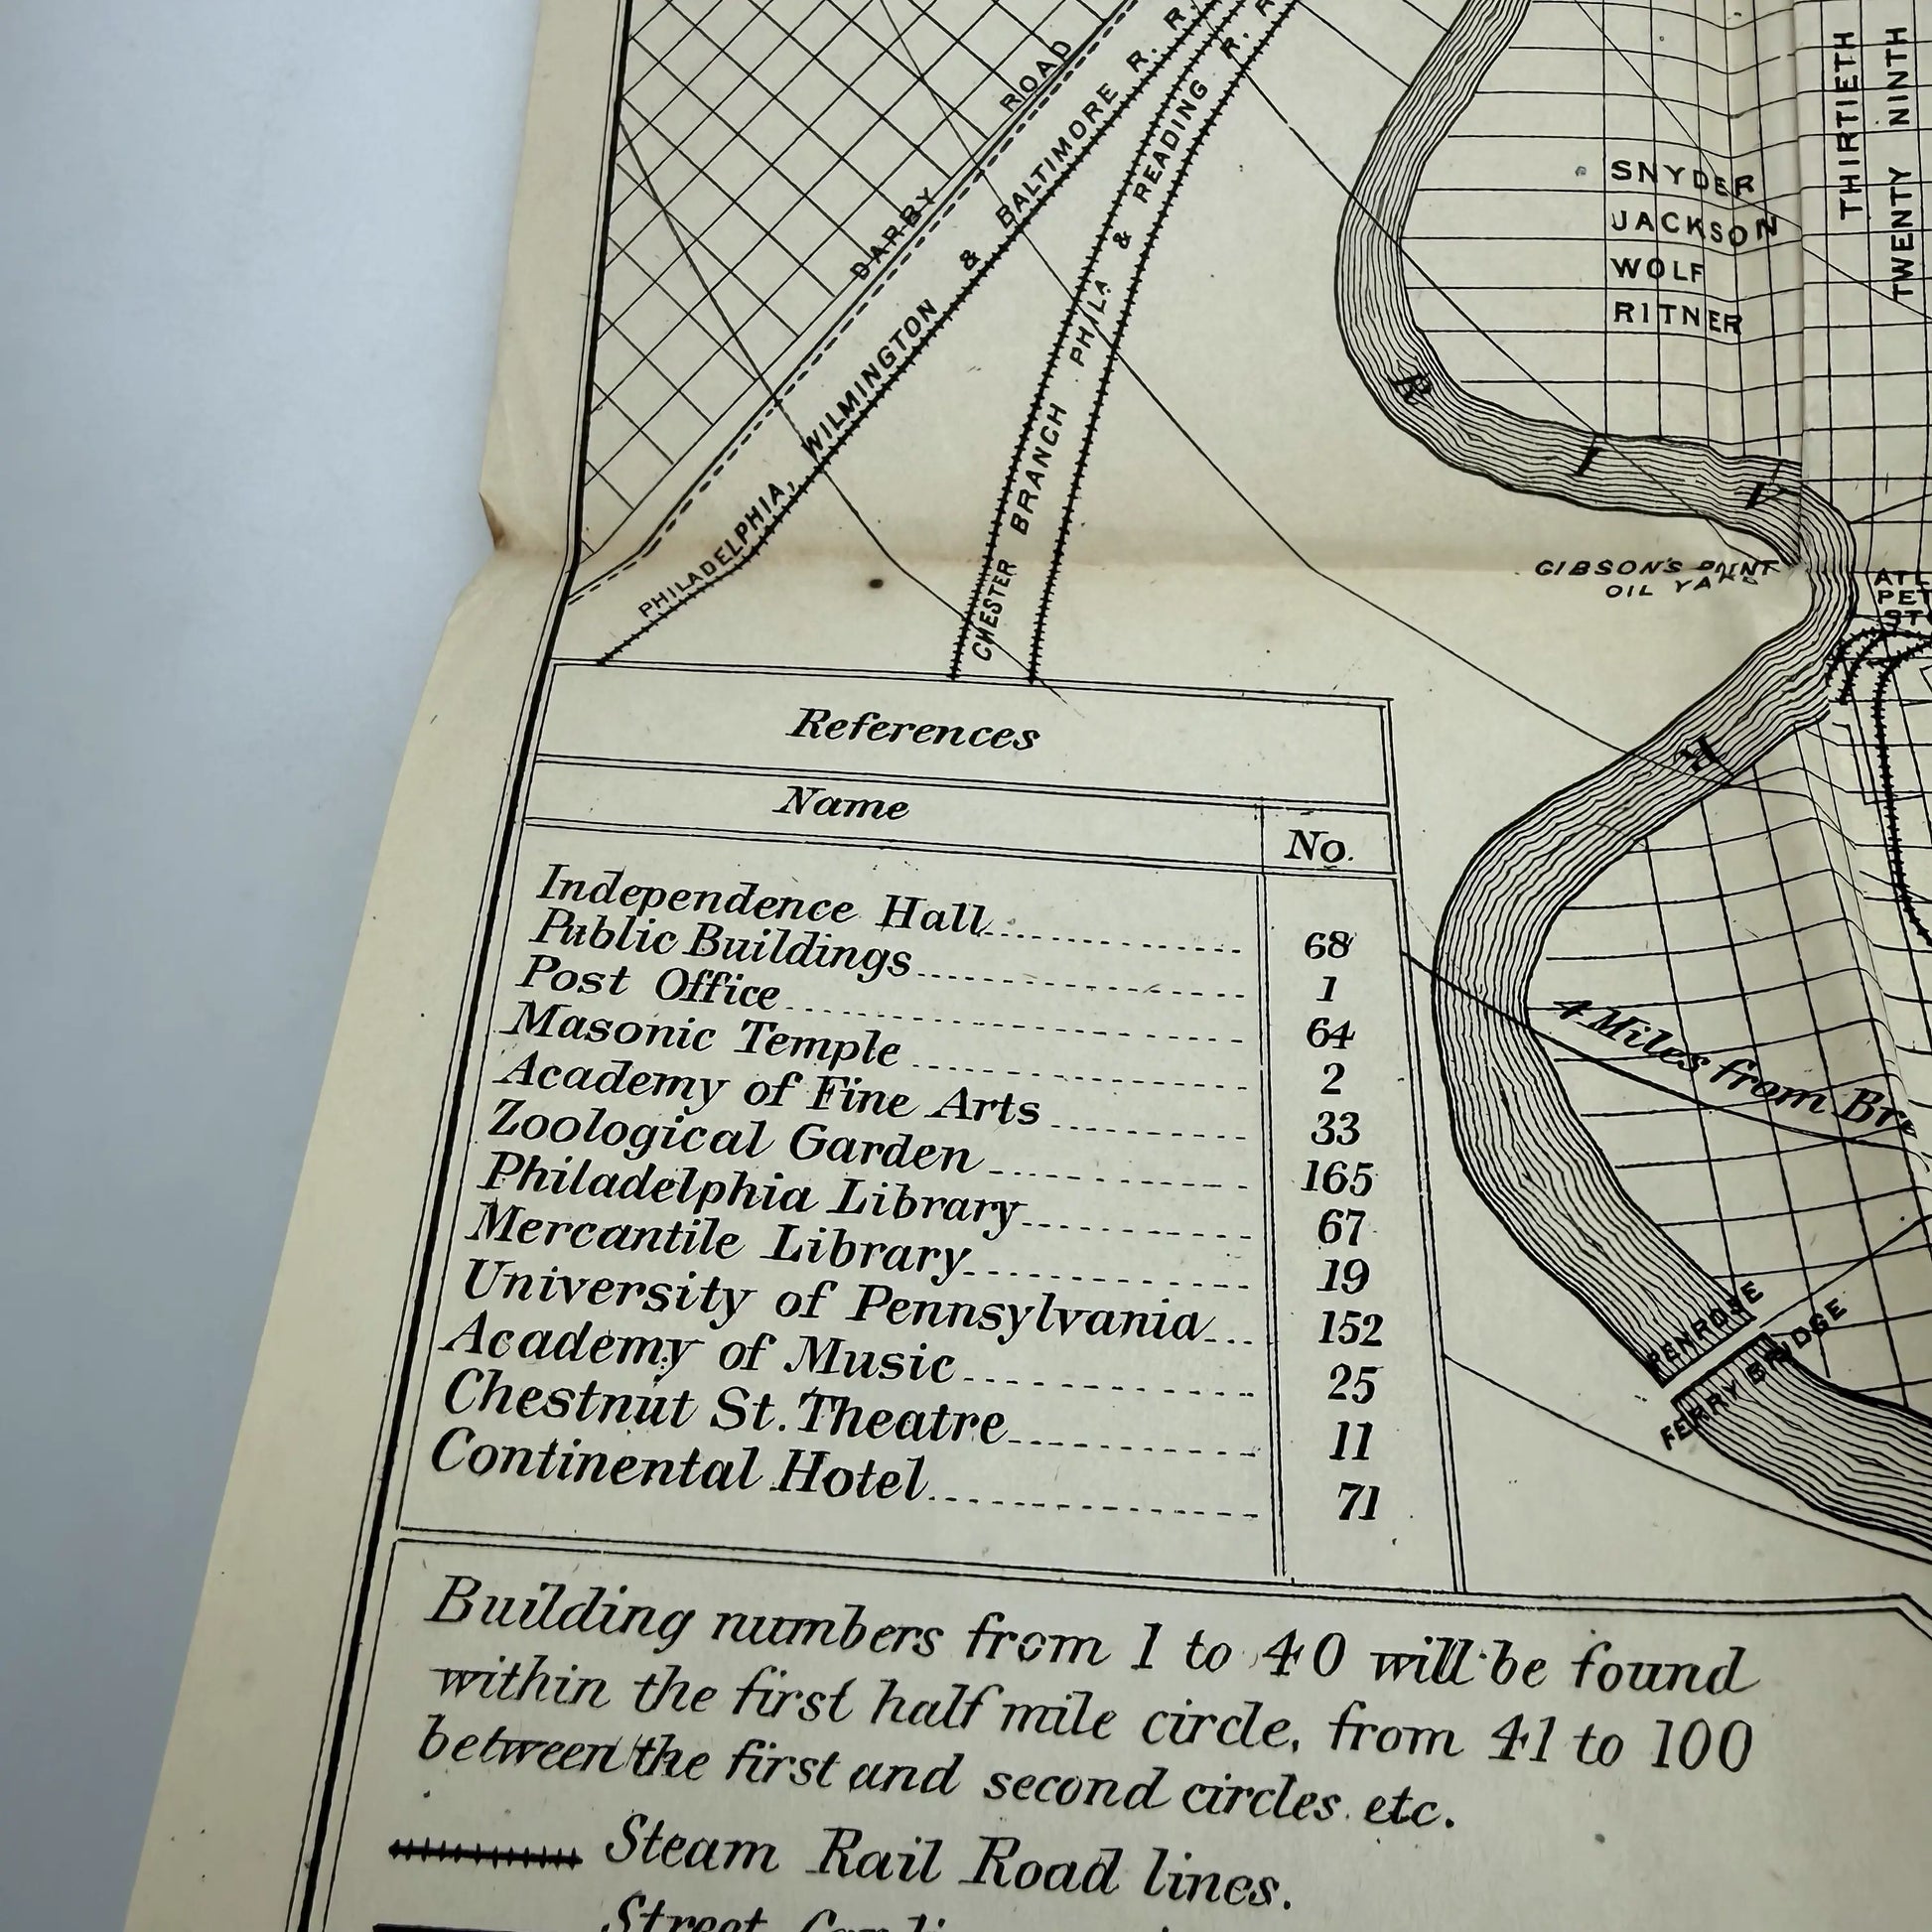 DARBY ROAD
PHILADELPHIA, WILMINGTON & BALTIMORE R. R.
CHESTER BRANCH PHILA. & READING R. R.
THIRTIETH
TWENTY NINTH
SNYDER
JACKSON
WOLF
RITNER
R I V R
GIBSON'S POINT
OIL YARD
ATL
PET
ST
References
Name No.
Independence Hall 68
Public Buildings 1
Post Office 64
Masonic Temple 2
Academy of Fine Arts 33
Zoological Garden 165
Philadelphia Library 67
Mercantile Library 19
University of Pennsylvania 152
Academy of Music 25
Chestnut St. Theatre 11
Continental Hotel 71
4 Miles from Br
PENROSE
FERRY BRIDGE
Building numbers from 1 to 40 will be found
within the first half mile circle, from 41 to 100
between the first and second circles etc.
Steam Rail Road lines.
Street